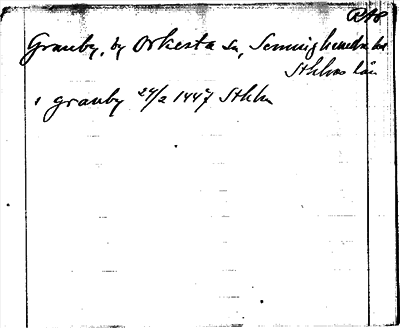 RAP
Granby, by Orkesta sn, Seminghundra hd
Sthlms län
i granby 24/2 1447 Sthlm